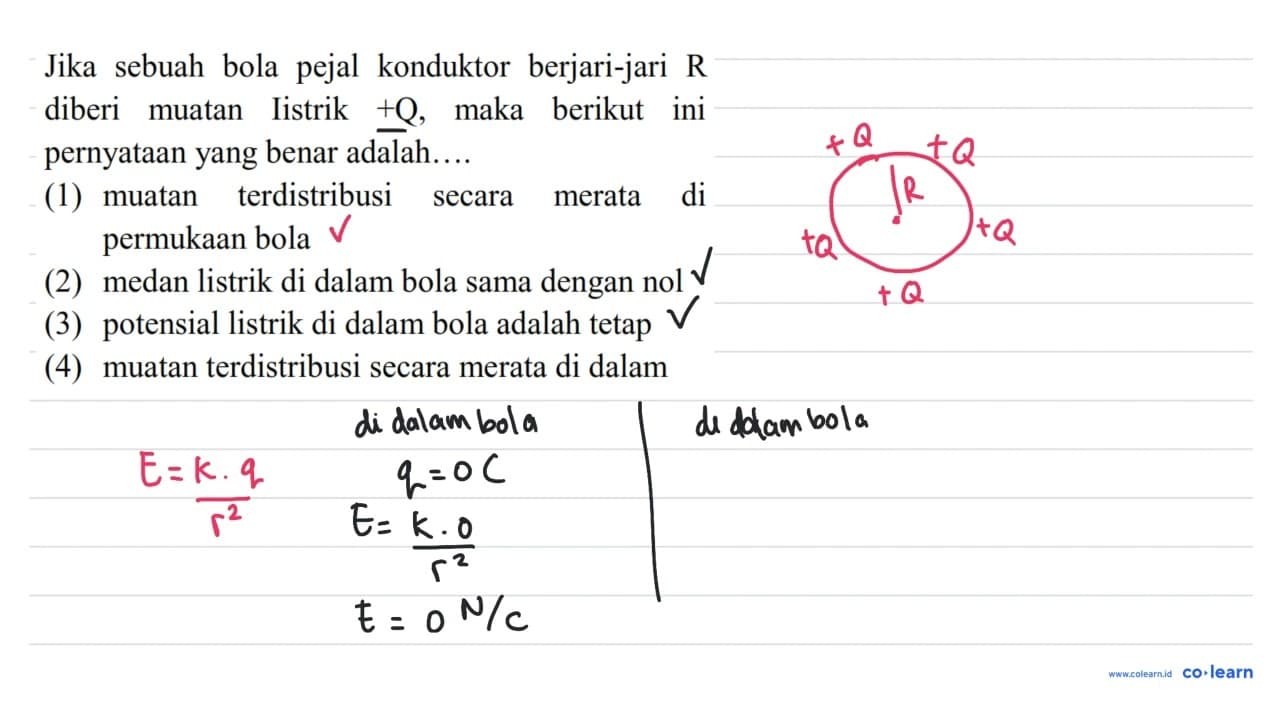 Jika sebuah bola pejal konduktor berjari-jari R
diberi muatan Iistrik +Q, maka berikut ini
pernyataan yang benar adalah....
(1) muatan terdistribusi secara merata di
permukaan bola ✓
(2) medan listrik di dalam bola sama dengan nol ✓
(3) potensial listrik di dalam bola adalah tetap ✓
(4) muatan terdistribusi secara merata di dalam
+Q +Q
R
+Q +Q
+Q
di dalam bola
di dalam bola
E = k . q / r²
q = 0 C
E = k . 0 / r²
E = 0 N/C
www.colearn.id co·learn